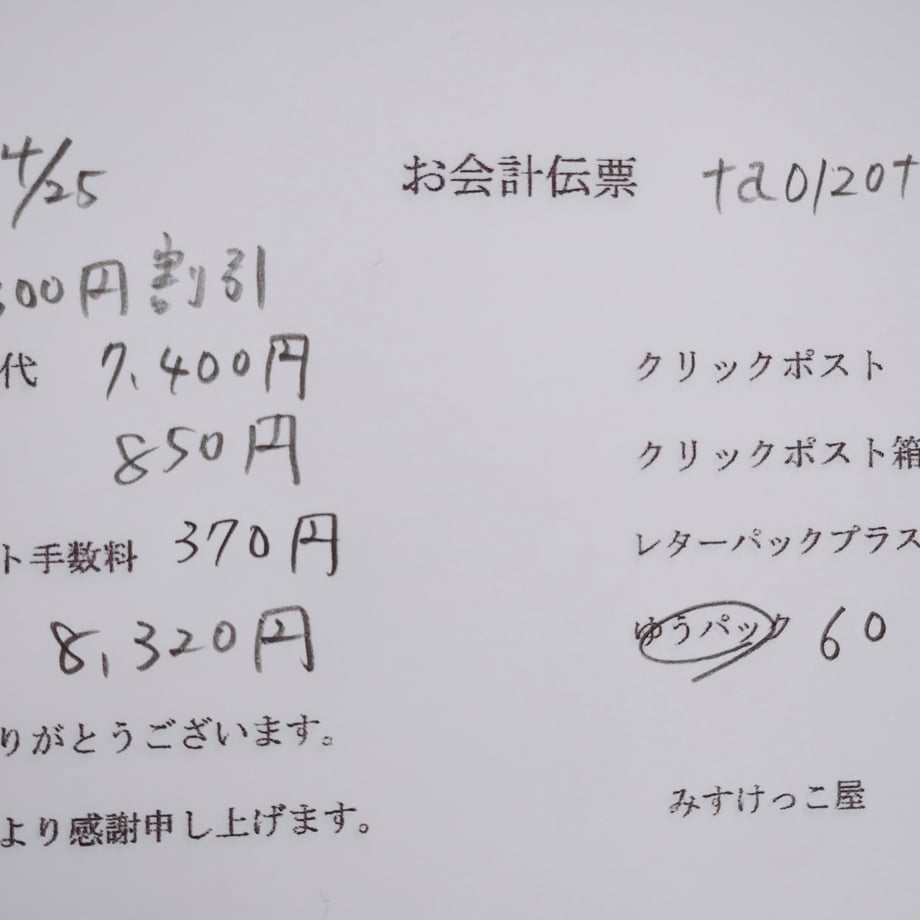 4/25
お会計伝票 ta0120t
00円割引
代 7,400円
クリックポスト
850円
クリックポスト箱
ト手数料 370円
レターパックプラス
8,320円
ゆうパック 60
りがとうございます。
みすけっこ屋
より感謝申し上げます。